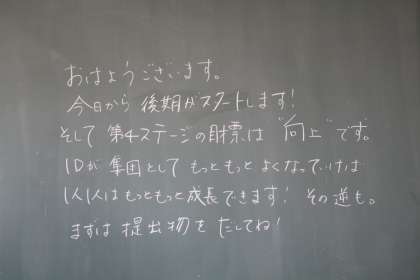 おはようございます。
今日から 後期がスタートします!
そして 第4ステージの財票は "向上" です。
1Dが 集団として もっともっと よくなっていけば
1人1人は もっともっと 成長できます! その逆も。
まずは 提出物を だしてね!